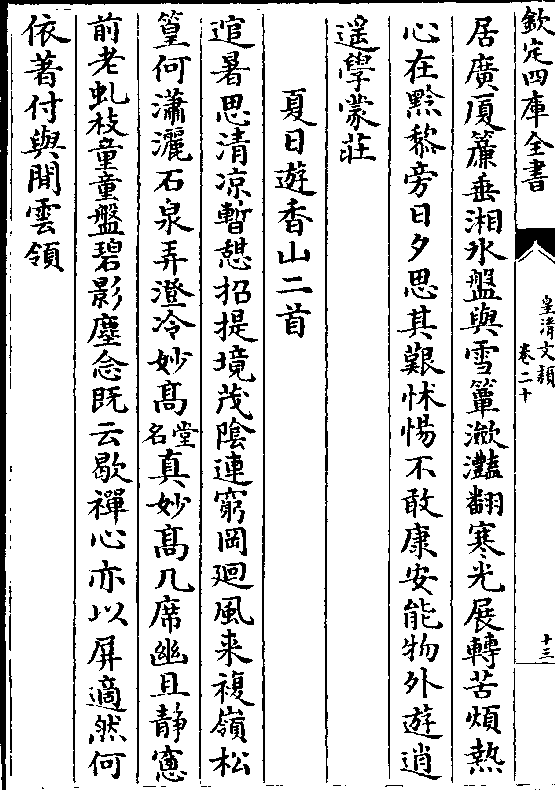 欽定四庫全書
皇清文穎
卷二十
十三
居廣厦簾垂湘氷盤與雪簟潋灩翻寒光展轉苦煩熱
心在黔黎旁日夕思其艱怵惕不敢康安能物外遊逍
遥學蒙莊
夏日遊香山二首
逭暑思清凉暫憇招提境茂陰連窮岡迴風来複嶺松
篁何瀟灑石泉弄澄冷妙髙堂名真妙髙几席幽且静窻
前老虬枝童童盤碧影塵念既云歇禪心亦以屏適然何
依著付與閒雲領